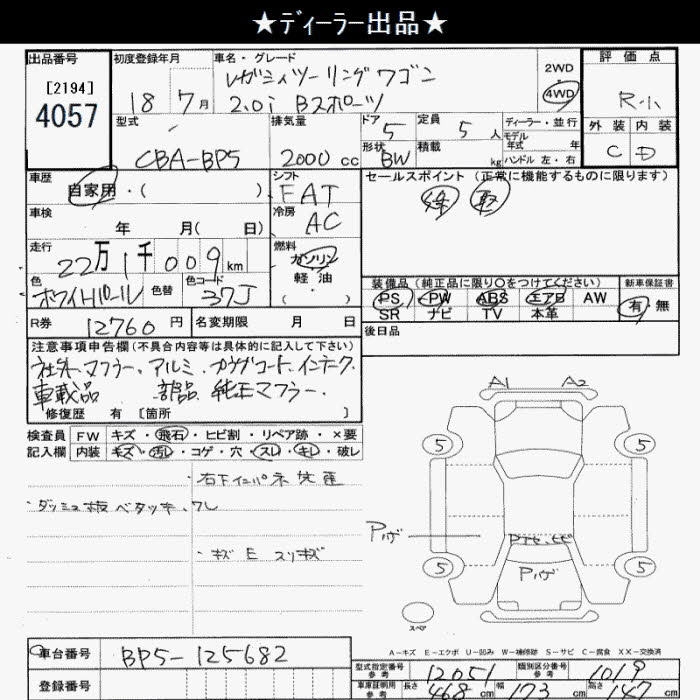 ★ディーラー出品★
出品番号
[2194]
4057
初度登録年月
18 7月
車名・グレード
レガシィツーリングワゴン
2.0i Bスポーツ
2WD
4WD
評価点
R-小
外装 内装
C D
型式
CBA-BP5
排気量
2000cc
ドア 5
形状 BW
定員 5人
積載 kg
ディーラー・並行
モデル
年式 年
ハンドル 左・右
車歴
自家用・( )
シフト
FAT
セールスポイント(正常に機能するものに限ります)
車検
年 月( 日)
冷房
AC
走行
22万1千009km
燃料
ガソリン
軽油
( ・ )
色
ホワイトパール
色替
色コード
37J
装備品(純正品に限り○をつけてください)
PS PW ABS エアB AW
SR ナビ TV 本革
新車保証書
有 無
R券 12760円
名変期限 月 日
後日品
注意事項申告欄(不具合内容等は具体的に記入して下さい)
社外マフラー、アルミ、
車載品 部品 純正マフラー.
修復歴 有 [箇所 ]
検査員
記入欄
FW キズ・飛石・ヒビ割・リペア跡・×要
内装 キズ・汚レ・コゲ・穴・スレ・キレ・破レ
・ダッシュ板ベタツキ、ワレ
・キズ E スリキズ
A1 A2
5 5
5 5
Pハゲ
Pハゲ
スペア
A-キズ E-エクボ U-凹み W-補修跡 S-サビ C-腐食 XX-交換済
車台番号
BP5-125682
登録番号
型式指定番号
参考
12051
類別区分番号
参考
1019
車庫証明用
参考
長さ 468cm 幅 173cm 高さ 147cm